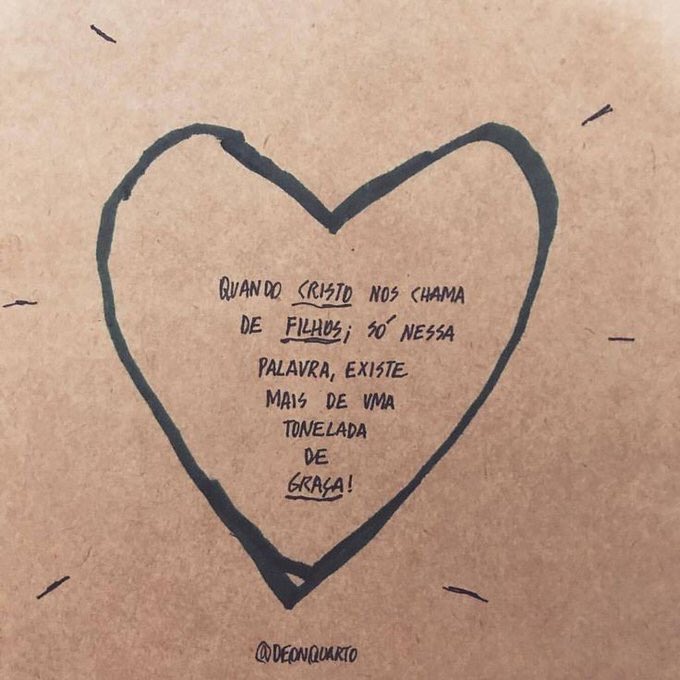 QUANDO CRISTO NOS CHAMA
DE FILHOS; SÓ NESSA
PALAVRA, EXISTE
MAIS DE UMA
TONELADA
DE
GRAÇA!
@DEONQUARTO